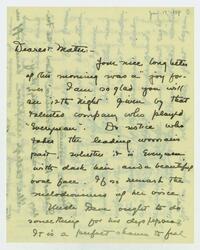 Dearest Mater -
Your nice long letter
of this morning was a "joy for-
ever". I am so glad you will
see 12th night given by that
talented company who played
"Everyman". Do notice who
takes the leading woman's
part whether it is Everyman
with dark hair and a beautiful
oval face. If so remark the
melodiousness of her voice
Uncle ought to do
something for his dyspepsia
It is a perfect shame to feel